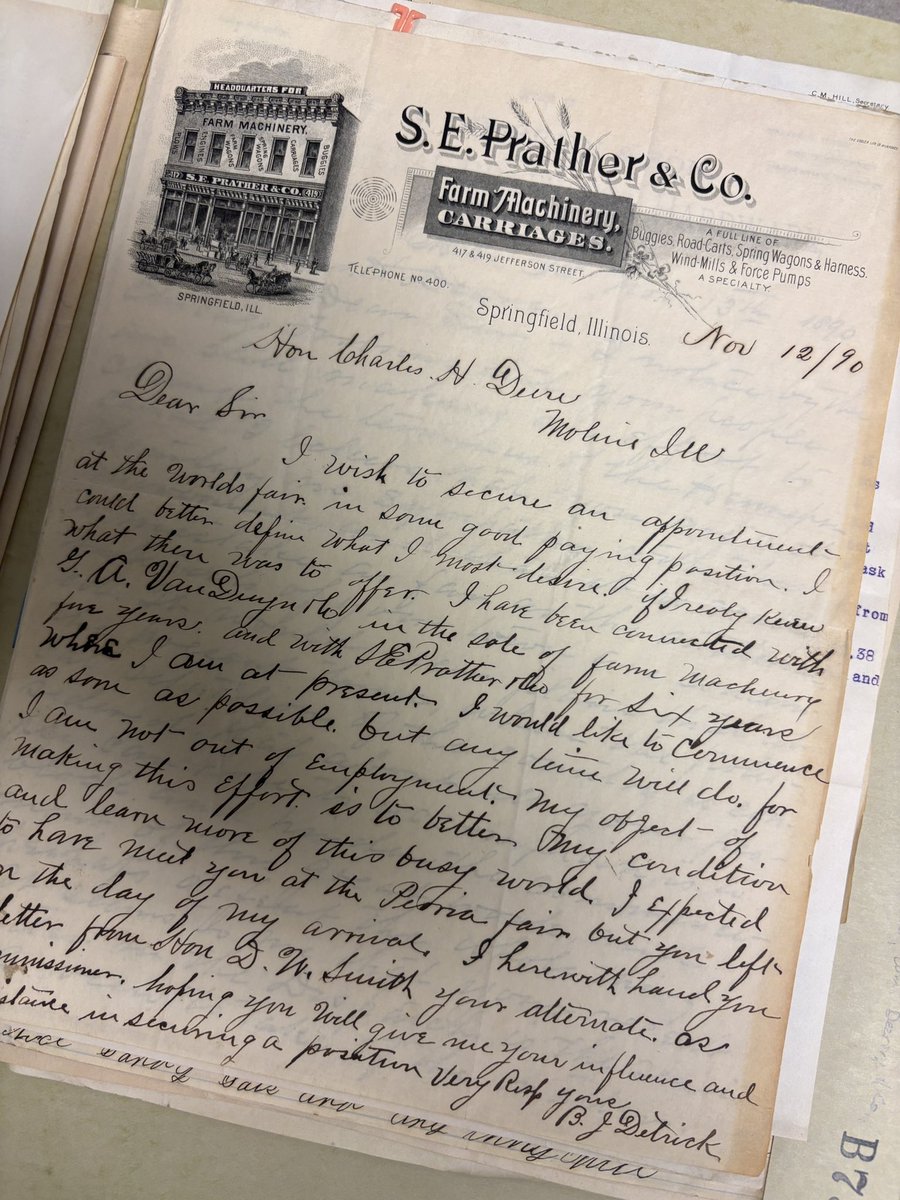 C. M. HILL, Secretary
HEADQUARTERS FOR
FARM MACHINERY.
PLOWS
ENGINES
FARM WAGONS
SPRING WAGONS
CARRIAGES
BUGGIES
417 S. E. PRATHER & CO. 419
SPRINGFIELD, ILL.
S. E. Prather & Co.
Farm Machinery,
CARRIAGES.
417 & 419 JEFFERSON STREET.
A FULL LINE OF
Buggies, Road-Carts, Spring Wagons & Harness.
Wind-Mills & Force Pumps
A SPECIALTY.
TELEPHONE NO 400.
Springfield, Illinois. Nov 12/90
Hon Charles. H. Deere
Moline Ill
Dear Sir
I wish to secure an appointment
at the worlds fair in some good paying position. I
could better define what I most desire, if I realy knew
what there was to offer. I have been connected with
G. A. VanDuyn & Co in the sale of farm machenry
five years. and with S E Prather & Co for six years
where I am at present. I would like to commence
as soon as possible. but any time will do. for
I am not out of employment. My object of
making this effort. is to better my condition
and learn more of this busy world. I expected
to have met you at the Peoria fair. but you left
on the day of my arrival. I herewith hand you
letter from Hon D. W. Smith your alternate. as
mmissioner. hoping you will give me your influence and
sistance in securing a position Very Resp yours
B. J. Detrick
ask
from
.38
and
B7